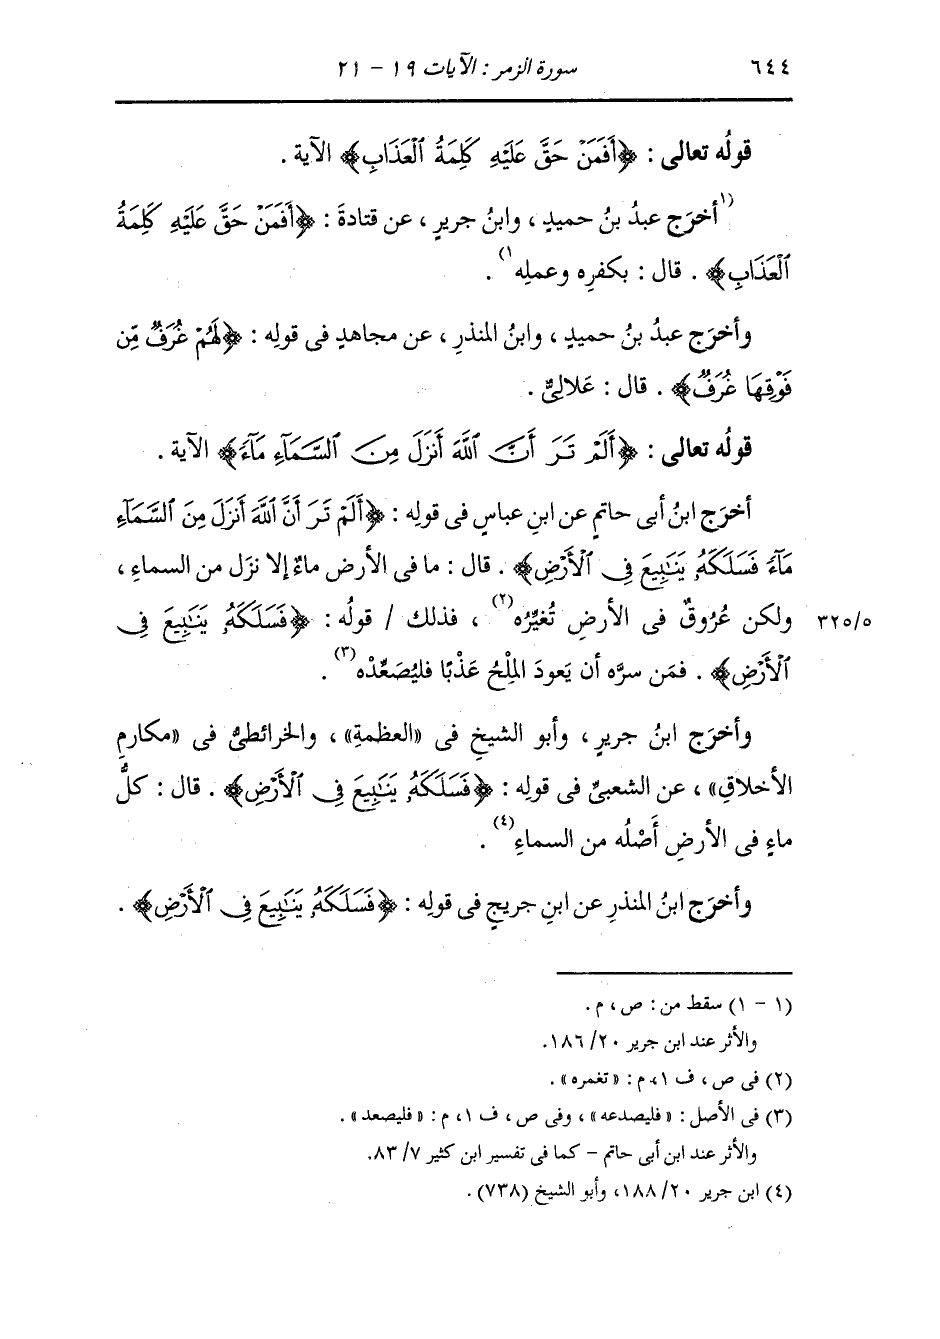 ٦٤٤ سورة الزمر : الآيات ١٩ - ٢١
قولُه تعالى : ﴿أَفَمَنْ حَقَّ عَلَيْهِ كَلِمَةُ ٱلْعَذَابِ﴾ الآية .
(١)أخرَج عبدُ بنُ حميدٍ ، وابنُ جريرٍ ، عن قتادةَ : ﴿أَفَمَنْ حَقَّ عَلَيْهِ كَلِمَةُ
ٱلْعَذَابِ﴾ . قال : بكفرِه وعملِه(١) .
وأخرَج عبدُ بنُ حميدٍ ، وابنُ المنذرِ ، عن مجاهدٍ فى قولِه : ﴿لَهُمْ غُرَفٌ مِّن
فَوْقِهَا غُرَفٌ﴾ . قال : عَلالِىُّ .
قولُه تعالى : ﴿أَلَمْ تَرَ أَنَّ ٱللَّهَ أَنزَلَ مِنَ ٱلسَّمَآءِ مَآءً﴾ الآية .
أخرَج ابنُ أبى حاتمٍ عن ابنِ عباسٍ فى قولِه : ﴿أَلَمْ تَرَ أَنَّ ٱللَّهَ أَنزَلَ مِنَ ٱلسَّمَآءِ
مَآءً فَسَلَكَهُۥ يَنَٰبِيعَ فِى ٱلْأَرْضِ﴾ . قال : ما فى الأرضِ ماءٌ إلا نزَل من السماءِ ،
ولكن عُرُوقٌ فى الأرضِ تُغَيِّرُه(٢) ، فذلك / قولُه : ﴿فَسَلَكَهُۥ يَنَٰبِيعَ فِى ٣٢٥/٥
ٱلْأَرْضِ﴾ . فمَن سرَّه أن يَعودَ المِلْحُ عَذْبًا فليُصَعِّدْه(٣) .
وأخرَج ابنُ جريرٍ ، وأبو الشيخِ فى «العظمةِ» ، والخرائطىُّ فى «مكارمِ
الأخلاقِ» ، عن الشعبىِّ فى قولِه : ﴿فَسَلَكَهُۥ يَنَٰبِيعَ فِى ٱلْأَرْضِ﴾ . قال : كلُّ
ماءٍ فى الأرضِ أَصْلُه من السماءِ(٤) .
وأخرَج ابنُ المنذرِ عن ابنِ جريجٍ فى قولِه : ﴿فَسَلَكَهُۥ يَنَٰبِيعَ فِى ٱلْأَرْضِ﴾ .
(١ - ١) سقط من : ص ، م .
والأثر عند ابن جرير ٢٠/ ١٨٦.
(٢) فى ص ، ف ١، م : « تغمره» .
(٣) فى الأصل : « فليصدعه» ، وفى ص ، ف ١، م : « فليصعد» .
والأثر عند ابن أبى حاتم - كما فى تفسير ابن كثير ٧/ ٨٣.
(٤) ابن جرير ٢٠/ ١٨٨، وأبو الشيخ (٧٣٨) .